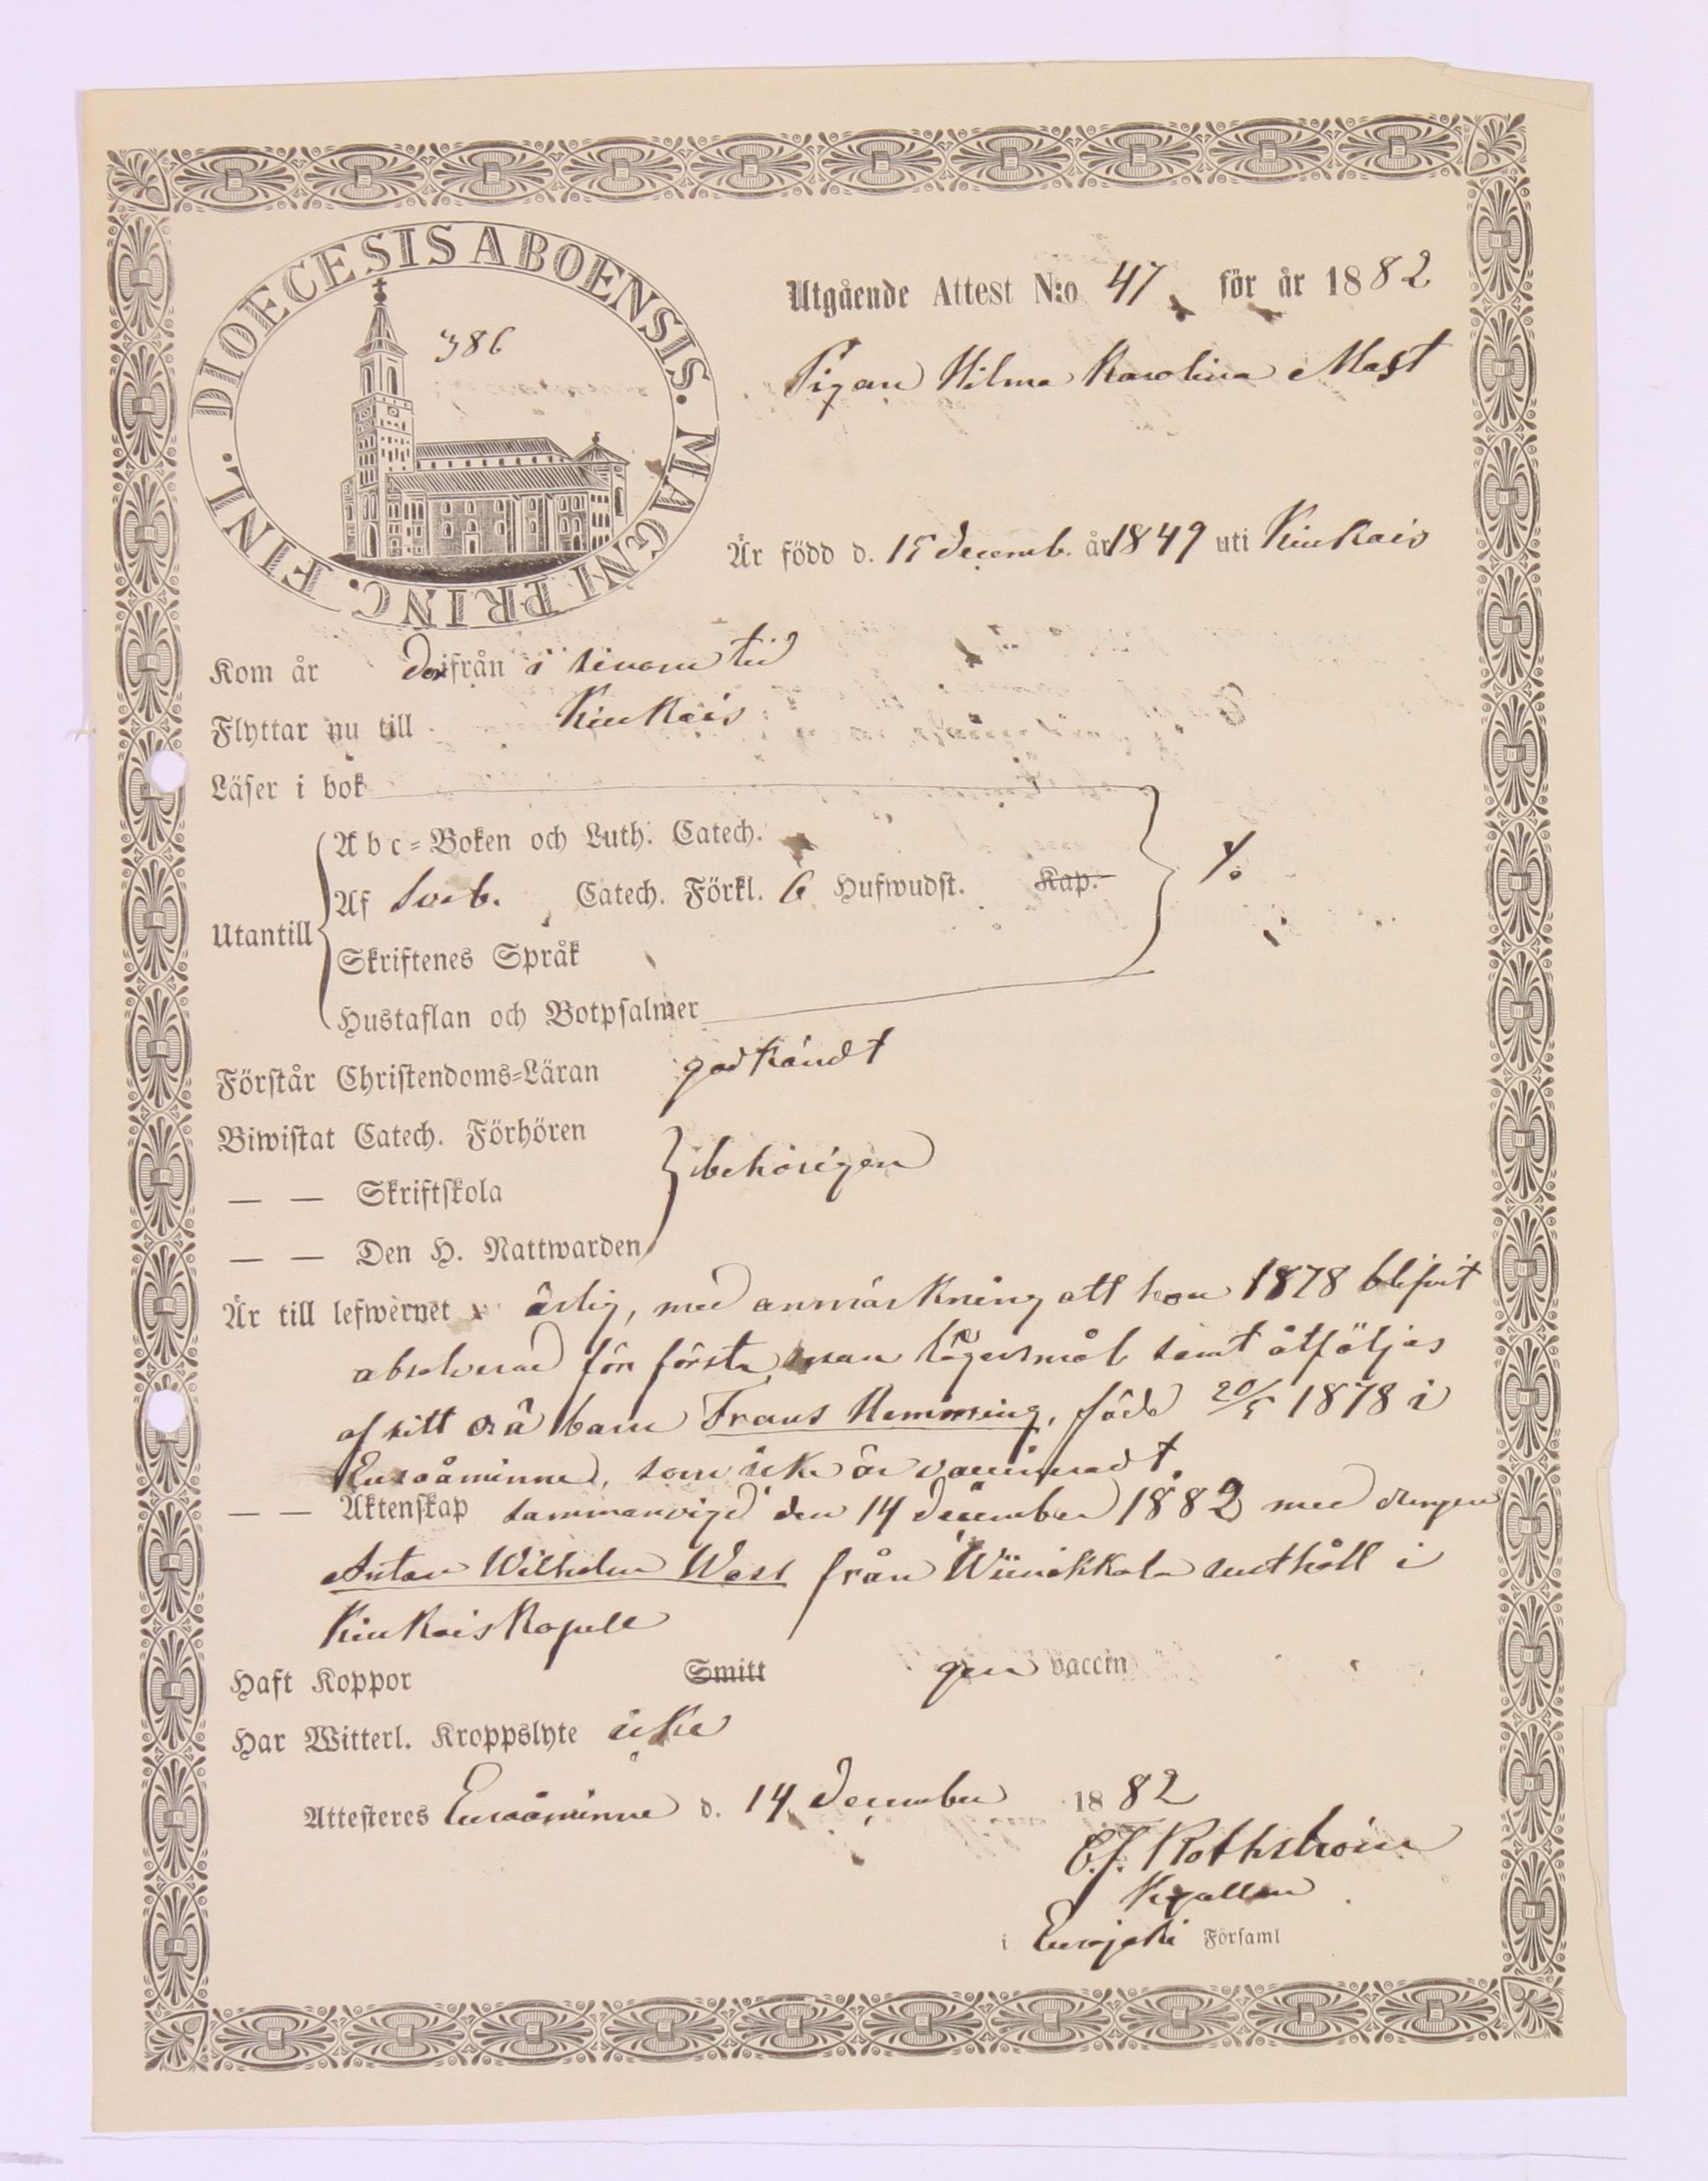 DIOECESIS ABOENSIS. MAGNI PRINC. FINL.
386
Utgående Attest N:o 47 för år 1882
Pigan Hilma Karolina Mast
Är född d. 15 decemb. år 1849 uti Kiukais
Kom år därifrån i sinom tid
Flyttar nu till Kiukais
Läser i bok
Utantill
Abc-Boken och Luth. Catech.
Af Sveb. Catech. Förkl. 6 Hufwudst. Kap.
Skriftenes Språk
Hustaflan och Botpsalmer
Förstår Christendoms-Läran godkändt
Biwistat Catech. Förhören
— — Skriftskola behörigen
— — Den H. Nattwarden
Är till lefwernet ärlig, med anmärkning att hon 1878 blifvit
absolverad för första lägersmål samt åtföljes
af sitt oä barn Frans Hemming, född 20/5 1878 i
Euraåminne, som icke är vaccineradt.
— — Äktenskap sammanvigd den 14 december 1882 med drengen
Anton Wilhelm West från Wiinikkala rusthåll i
Kiukais Kapell
Haft Koppor Smitt gen vaccin
Har Witterl. Kroppslyte icke
Attesteres Euraåminne d. 14 December 1882
C. J. Rothström
Kapellan
i Eurajoki Församl